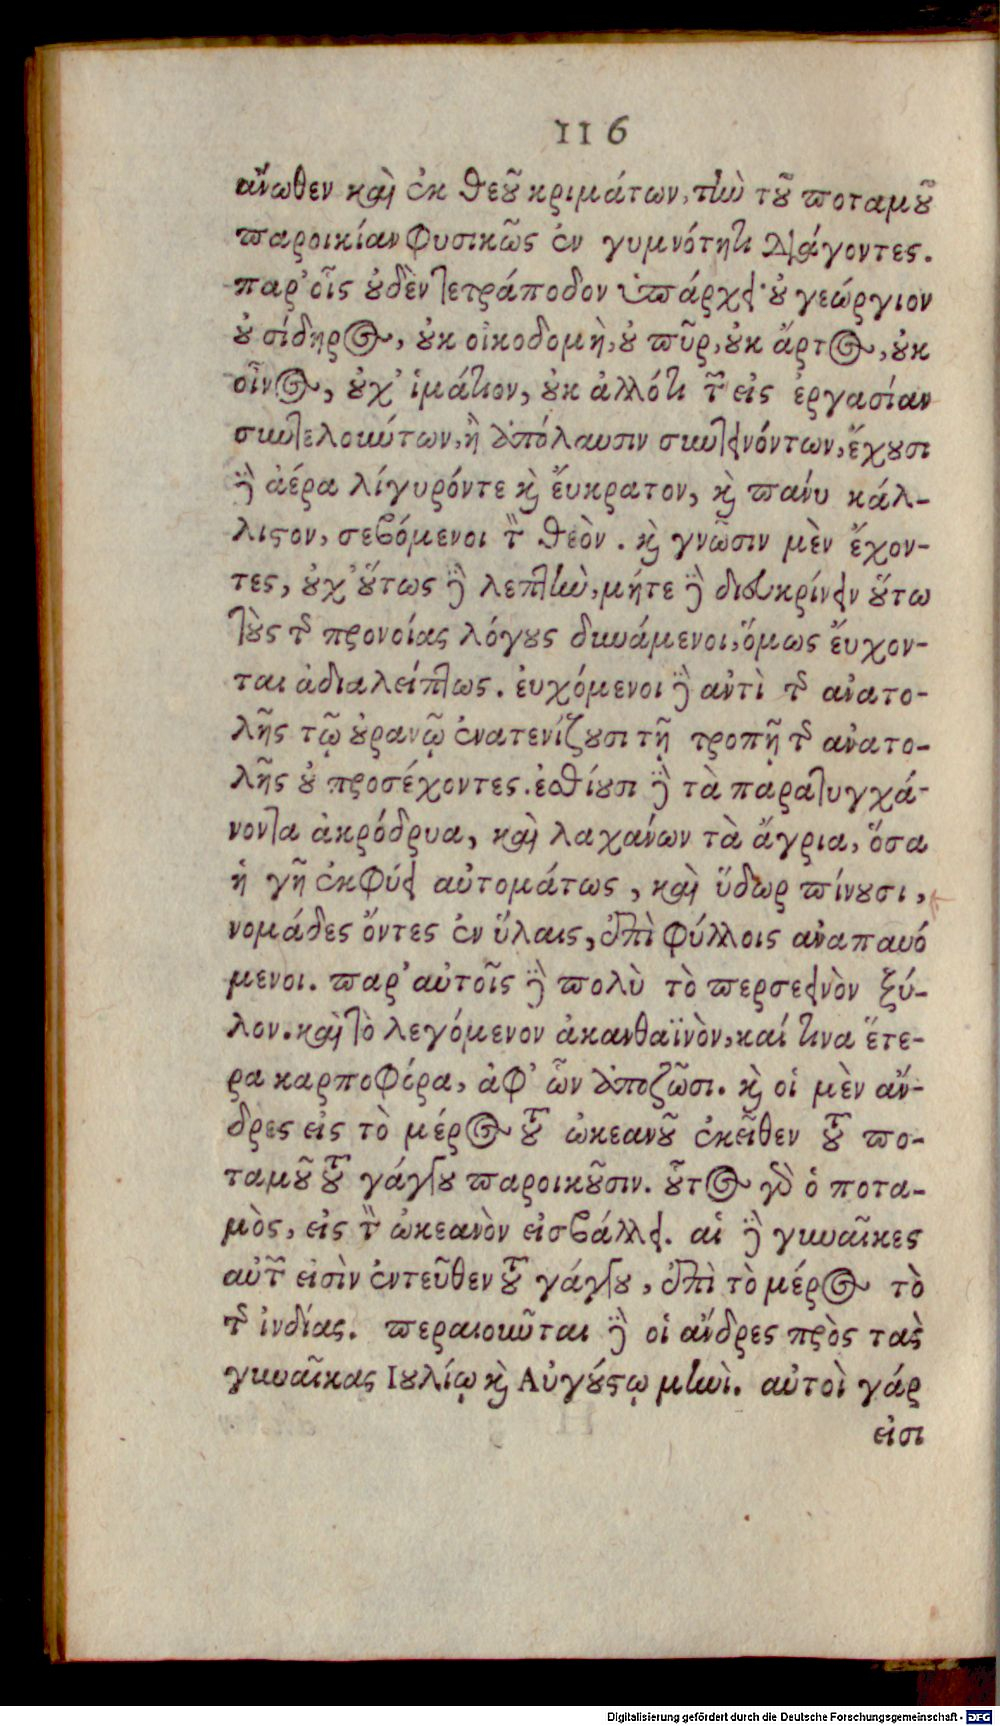 116
ἄνωθεν καὶ ἐκ θεοῦ κριμάτων, τὴν τοῦ ποταμοῦ
παροικίαν φυσικῶς ἐν γυμνότητι διάγοντες.
παρ᾽ οἷς οὐδὲν τετράποδον ὑπάρχει· οὐ γεώργιον
οὐ σίδηρος, οὐκ οἰκοδομὴ, οὐ πῦρ, οὐκ ἄρτος, οὐκ
οἶνος, οὐχ᾽ ἱμάτιον, οὐκ ἀλλότι τῶν εἰς ἐργασίαν
συντελούντων, ἢ ἀπόλαυσιν συντεινόντων, ἔχουσι
δὲ ἀέρα λίγυρόντε καὶ ἔυκρατον, καὶ πανύ κάλ-
λιστον, σεβόμενοι τὸν θεὸν. καὶ γνῶσιν μὲν ἔχον-
τες, οὐχ᾽ οὕτως δὲ λεπτὴν, μήτε δὲ διακρίνειν οὕτω
τοὺς τῆς προνοίας λόγους δυνάμενοι, ὅμως ἔυχον-
ται ἀδιαλείπτως. ἐυχόμενοι δὲ αντὶ τῆς ανατο-
λῆς τῷ οὐρανῷ ἐνατενίζουσι τῇ τροπῇ τῆς ανατο-
λῆς οὐ προσέχοντες. ἐσθίουσι δὲ τὰ παρατυγχά-
νοντα ἀκρόδρυα, καὶ λαχανων τὰ ἄγρια, ὅσα
ἡ γῆ ἐκφύει αὐτομάτως, καὶ ὕδωρ πίνουσι,
νομάδες ὄντες ἐν ὕλαις, ἐπὶ φύλλοις αναπαυό
μενοι. παρ᾽ αὐτοῖς δὲ πολὺ τὸ περσεεινὸν ξύ-
λον. καὶ τὸ λεγόμενον ἀκανθαϊνὸν, καί τινα ἕτε-
ρα καρποφόρα, ἀφ᾽ ὧν ἀποζῶσι. καὶ οἱ μὲν ἄν-
δρες εἰς τὸ μέρος τοῦ ὠκεανοῦ ἐκεῖθεν τοῦ πο-
ταμοῦ τοῦ γάγγου παροικοῦσιν. οὗτος γὰρ ὁ ποτα-
μὸς, εἰς τὸν ὠκεανὸν εἰσβάλλει. αἱ δὲ γυναῖκες
αὐτῶν εἰσὶν ἐντεῦθεν τοῦ γάγγου, ἐπὶ τὸ μέρος τὸ
τῆς ἰνδίας. περαιοῦνται δὲ οἱ ἄνδρες πρὸς τας
γυναῖκας Ιουλίῳ καὶ Αὐγούστῳ μηνὶ. αὐτοὶ γάρ
εἰσι
Digitalisierung gefördert durch die Deutsche Forschungsgemeinschaft - DFG